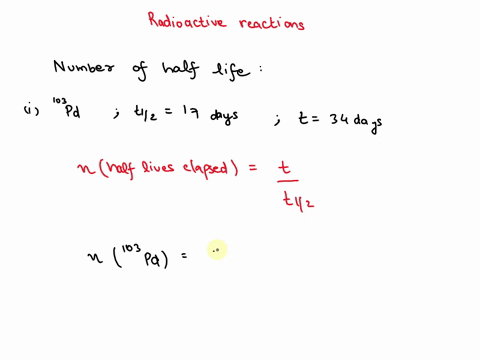 Radioactive reactions
Number of half life :
(i) ¹⁰³Pd ; t1/2 = 17 days ; t = 34 days
n (half lives elapsed) = t / t1/2
n (¹⁰³Pd) =